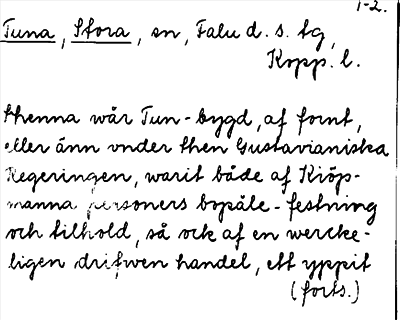 1-2.
Tuna, Stora, sn, Falu d. s. tg,
Kopp. l.
thenna wår Tun-bygd, af fornt,
eller änn vnder then Gustavianiska
Regeringen, warit både af Kiöp-
manna personers bopåle-festning
och tilhold, så ock af en wercke-
ligen drifwen handel, ett yppit
(forts.)